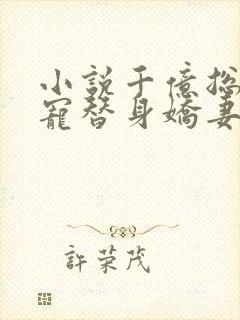 小說千億总
寵替身嬌妻
許荣茂